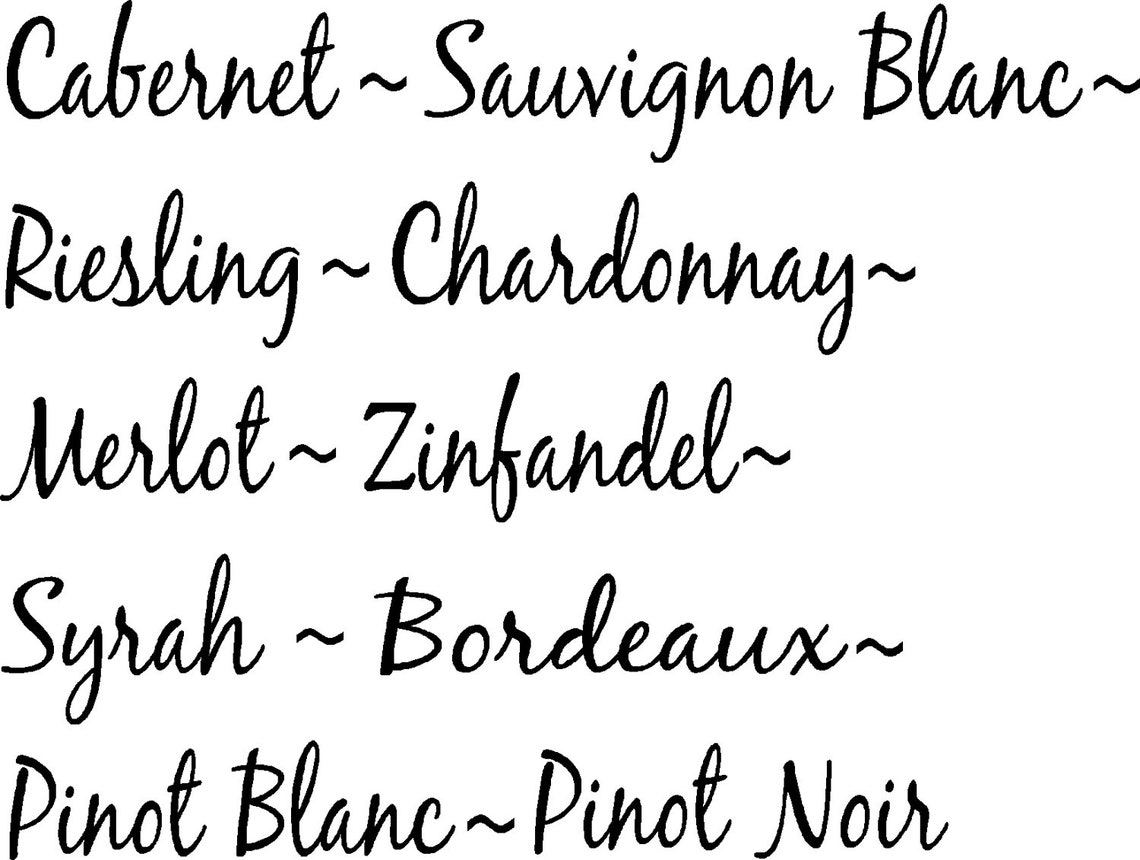 Cabernet ~ Sauvignon Blanc ~
Riesling ~ Chardonnay ~
Merlot ~ Zinfandel ~
Syrah ~ Bordeaux ~
Pinot Blanc ~ Pinot Noir